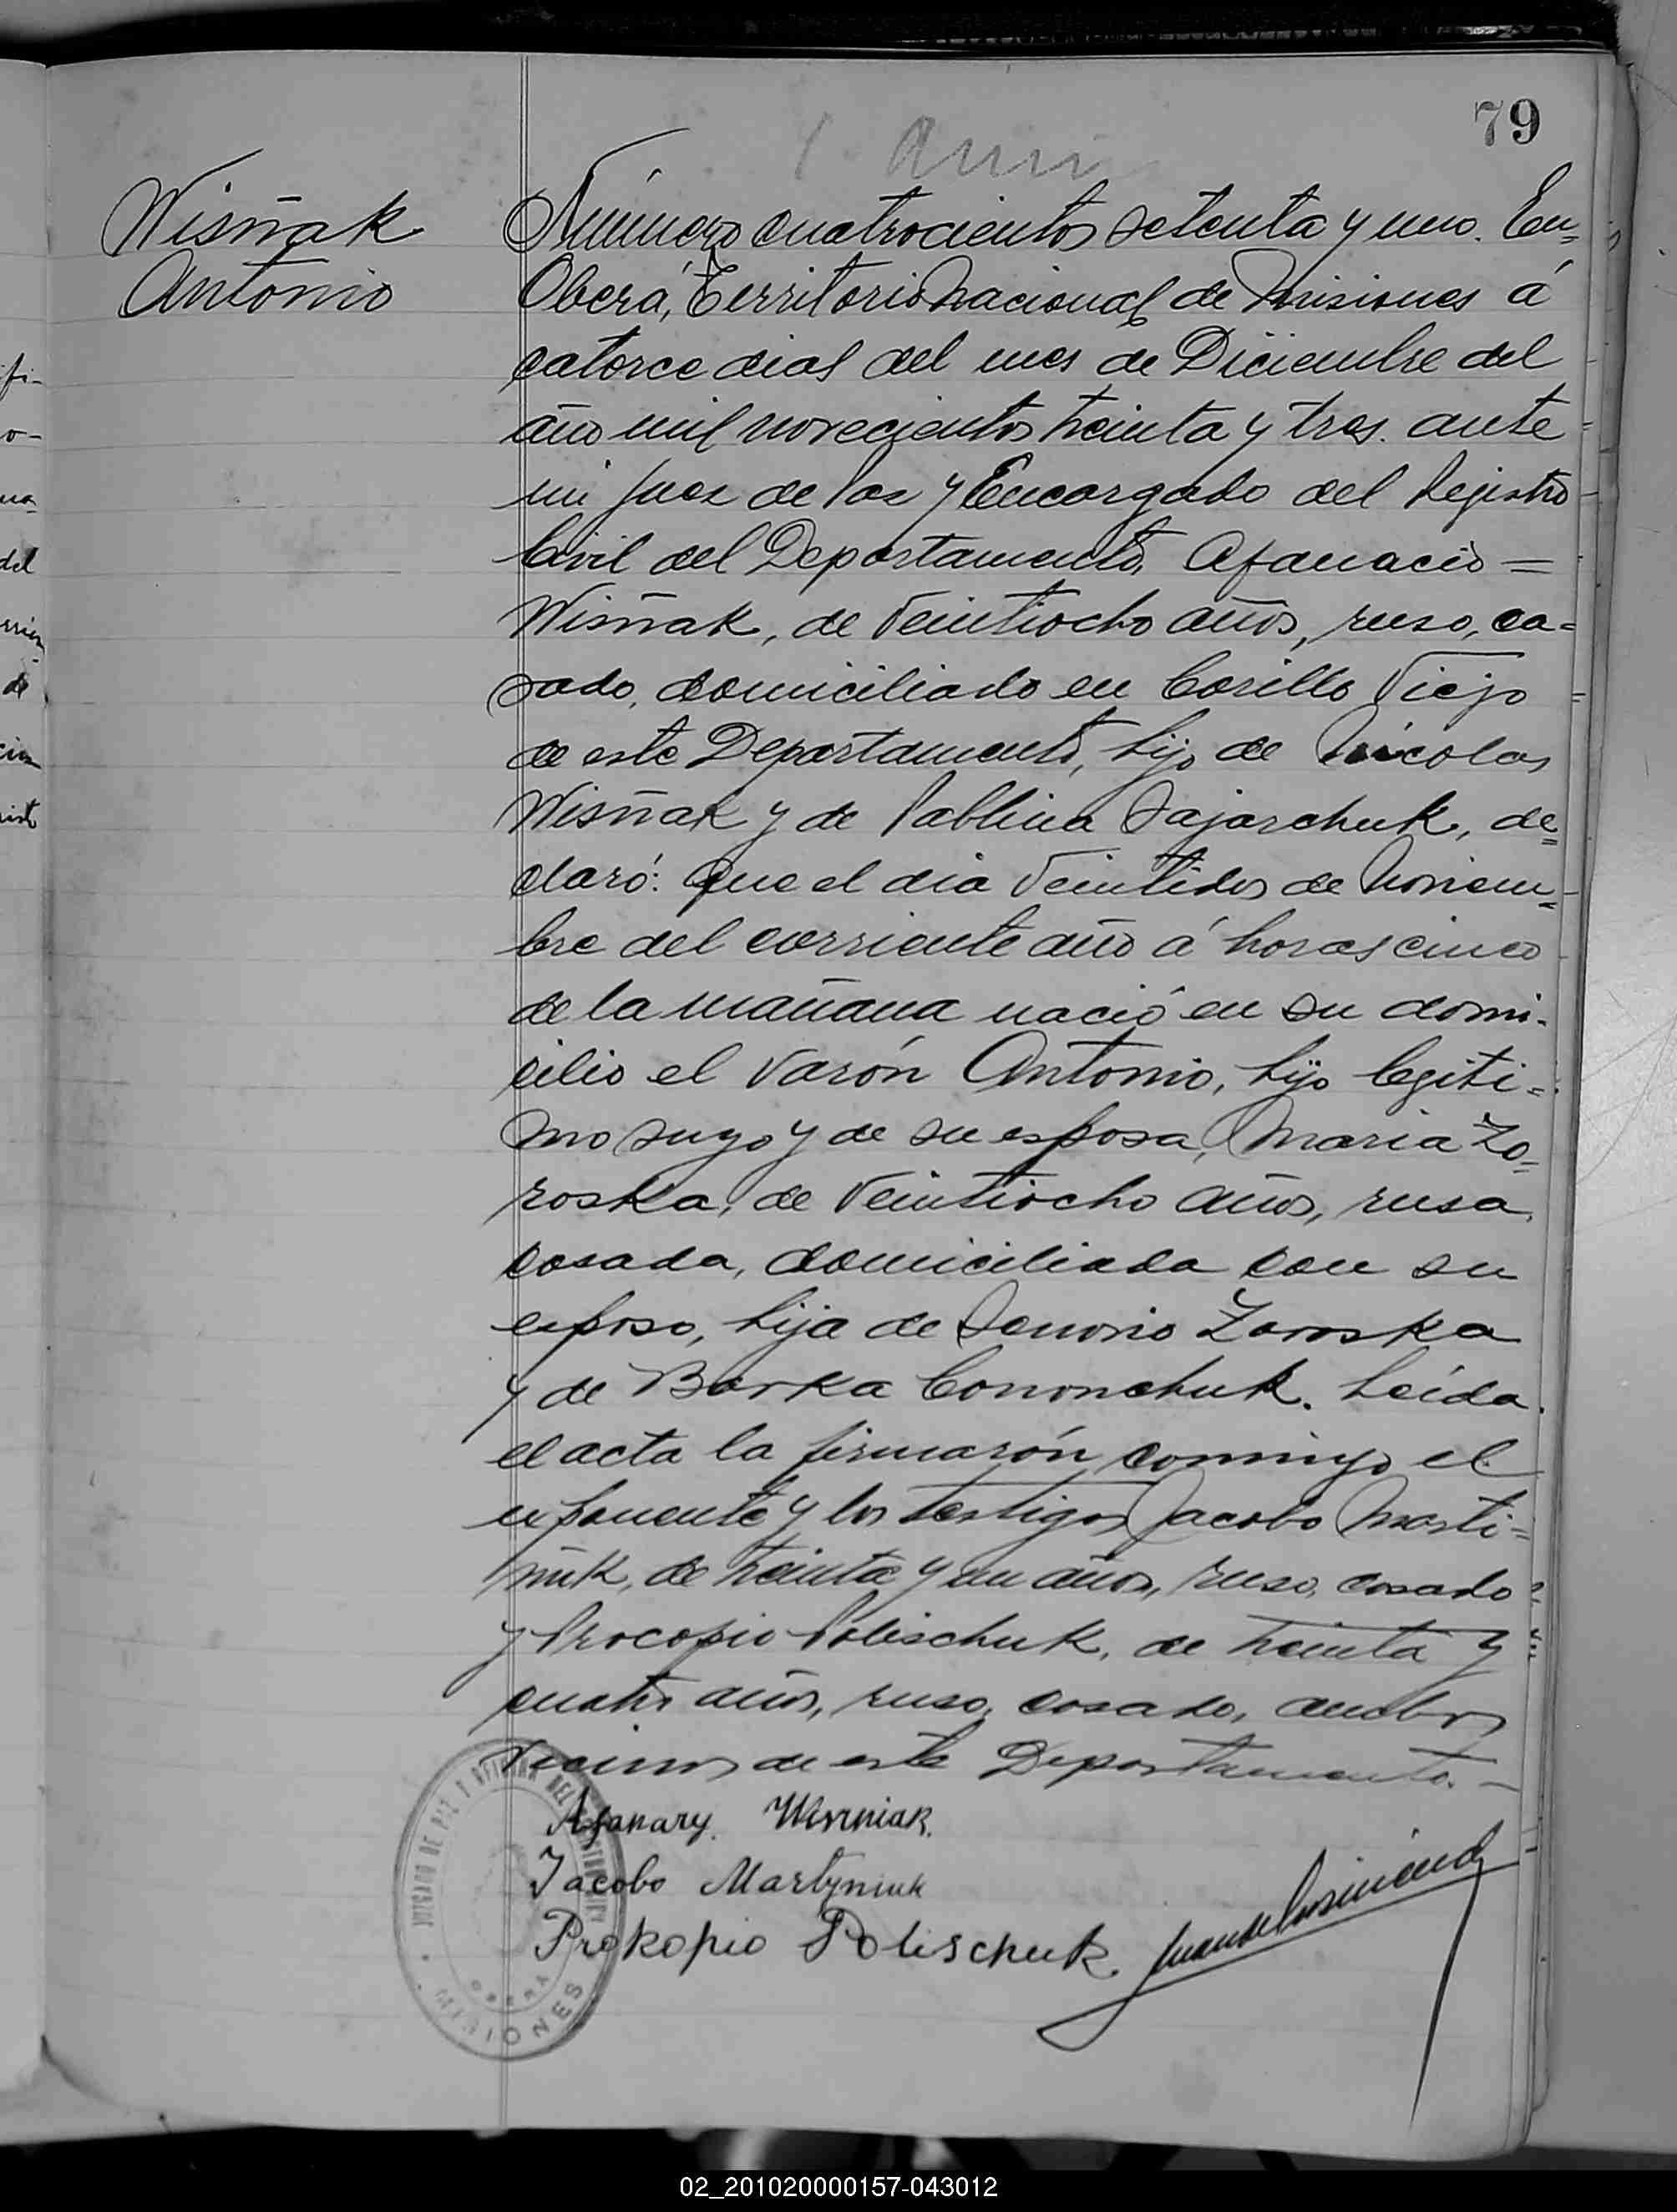 79
Wisñak
Antonio
Número cuatrocientos setenta y uno. En=
Oberá, Territorio Nacional de Misiones á
catorce dias del mes de Diciembre del
año mil novecientos treinta y tres. ante
mi Juez de Paz y Encargado del Registro
Civil del Departamento, Afanacio =
Wisñak, de veintiocho años, ruso, ca=
sado, domiciliado en Cerillo Viejo
de este Departamento, hijo de Nicolas
Wisñak y de Pablina Sajarchuk, de=
claró: Que el dia veintidos de Noviem=
bre del corriente año á horas cinco
de la mañana nació en su domi-
cilio el varón Antonio, hijo legiti=
mo suyo y de su esposa, Maria Zo=
roska, de veintiocho años, rusa,
casada, domiciliada con su
esposo, hija de Zoroska
y de Barka Cononchuk. Leída
el acta la firmarón conmigo el
exponente y los testigos Jacobo Marti=
niuk, de treinta y un años, ruso, casado
y Procopio Polischuk, de treinta y
cuatro años, ruso, casado, ambos
vecinos de este Departamento. -
Afanary Wisniak.
Jacobo Martyniuk
Prokopio Polischuk.
JUZGADO DE PAZ Y OFICINA DEL REGISTRO CIVIL
OBERA
MISIONES
02_201020000157-043012